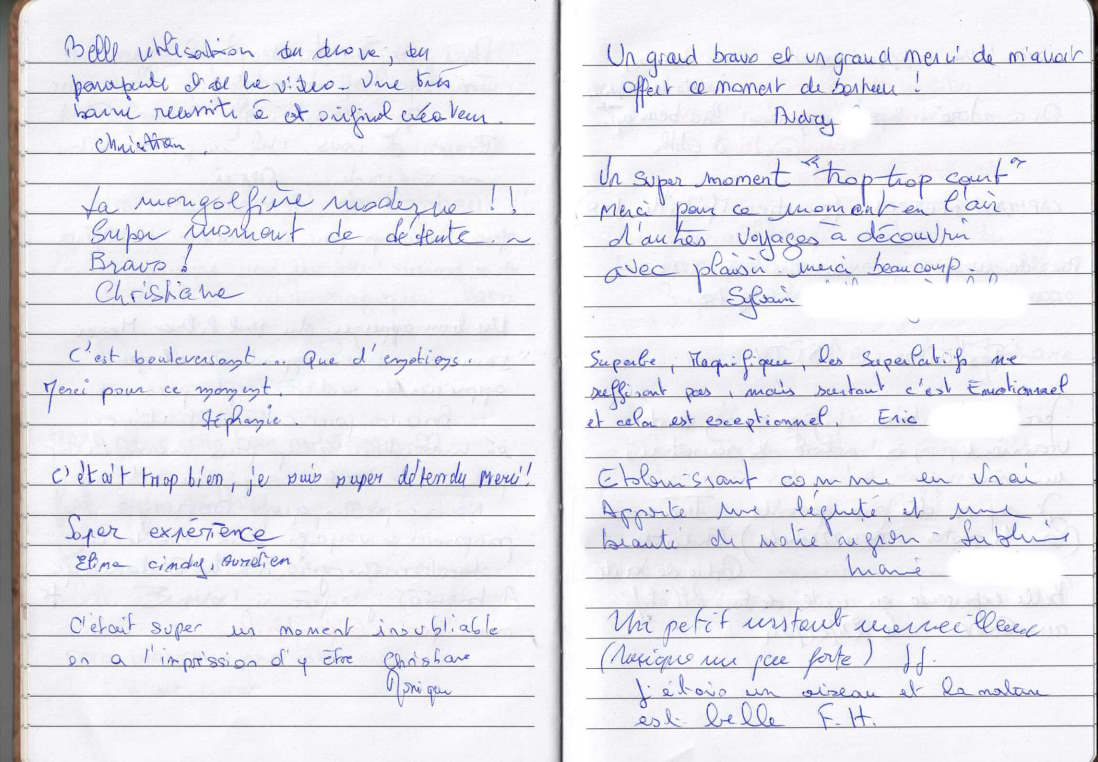 Belle utilisation du drone, du
parapente et de la vidéo. Une très
bonne réussite à cet original créateur.
Christian.
La mongolfière moderne !!
Super moment de détente. ~
Bravo !
Christiane
C'est bouleversant... Que d'émotions.
Merci pour ce moment.
Stéphanie.
C'était trop bien, je suis super détendu Merci!
Super expérience
Elina cindy, Aurélien
C'était super un moment inoubliable
on a l'impression d'y être Christiane
Monique
Un grand bravo et un grand merci de m'avoir
offert ce moment de bonheur !
Audrey
Un super moment "trop-trop court"
Merci pour ce moment en l'air
d'autres voyages à découvrir
avec plaisir. merci beaucoup.
Sylvain
Superbe, Magnifique, les Superlatifs ne
suffisent pas, mais surtout c'est Emotionnel
et celà est exceptionnel. Eric
Eblouissant comme en vrai
Apporte une légèreté et une
beauté de notre région. Sublime
Marie
Un petit instant merveilleux
(Musique un peu forte)
J'étais un oiseau et la nature
est belle F.H.